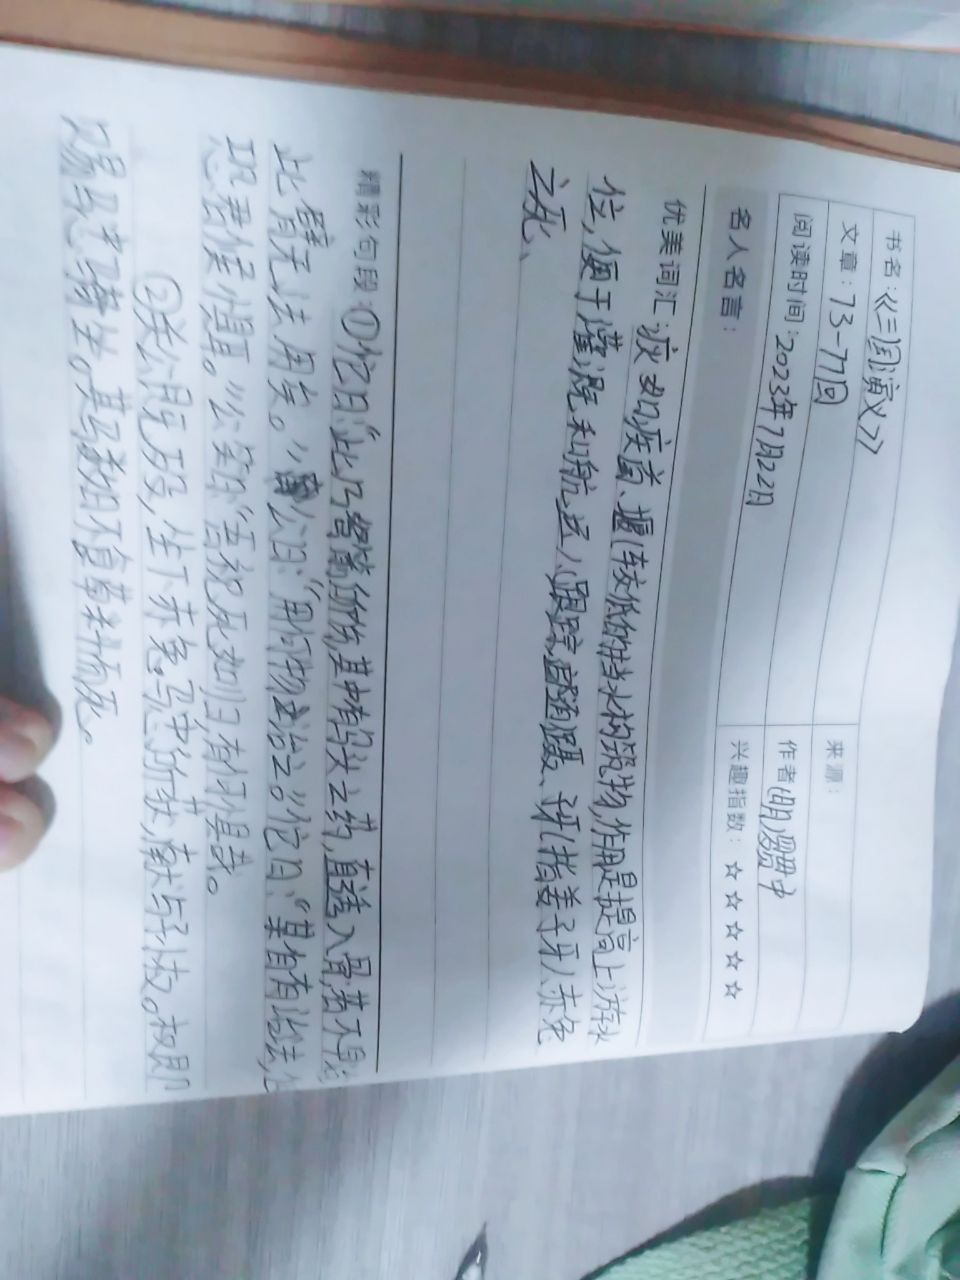 书名:《三国演义》
来源:
文章:73-77回
作者:(明)罗贯中
阅读时间:2023年7月22日
兴趣指数:☆☆☆☆☆
名人名言:
优美词汇:疚 如疾雷、堰(较低的挡水构筑物,作用是提高上游水
位,便于灌溉和航运)、踞 牙(指姜子牙)、赤兔
之死、
精彩句段:①佗曰:“此乃弩箭所伤,其中有乌头之药,直透入骨,若不早治
此臂无法用矣。”公曰:“用何物治之。”佗曰:“某自有治法,但
恐君侯惧耳。”公笑曰:“吾视死如归有何惧哉。
②关公既殁,坐下赤兔马被马忠所获,献与孙权。权即
赐马忠骑坐。其马数日不食草料而死。